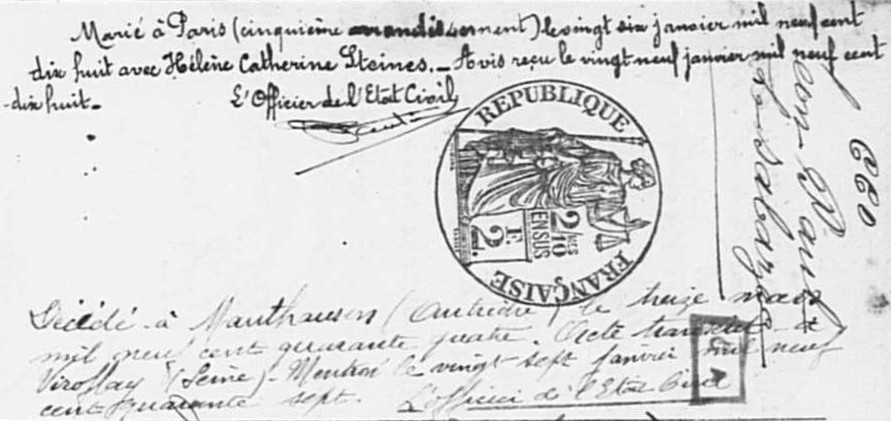 Marié à Paris (cinquième arrondissement) le vingt six janvier mil neuf cent
dix huit avec Hélène Catherine Steines. _ Avis reçu le vingt neuf janvier mil neuf cent
-dix huit.
L'Officier de l'Etat Civil,
REPUBLIQUE
FRANÇAISE
2/10
EN SUS
2F.
660
Léon Paul
Décédé à Mauthausen (Autriche) le treize mars
mil neuf cent quarante quatre. Acte transcrit à
Viroflay (Seine). Mention le vingt sept janvier mil neuf
cent quarante sept. L'officier de l'Etat Civil